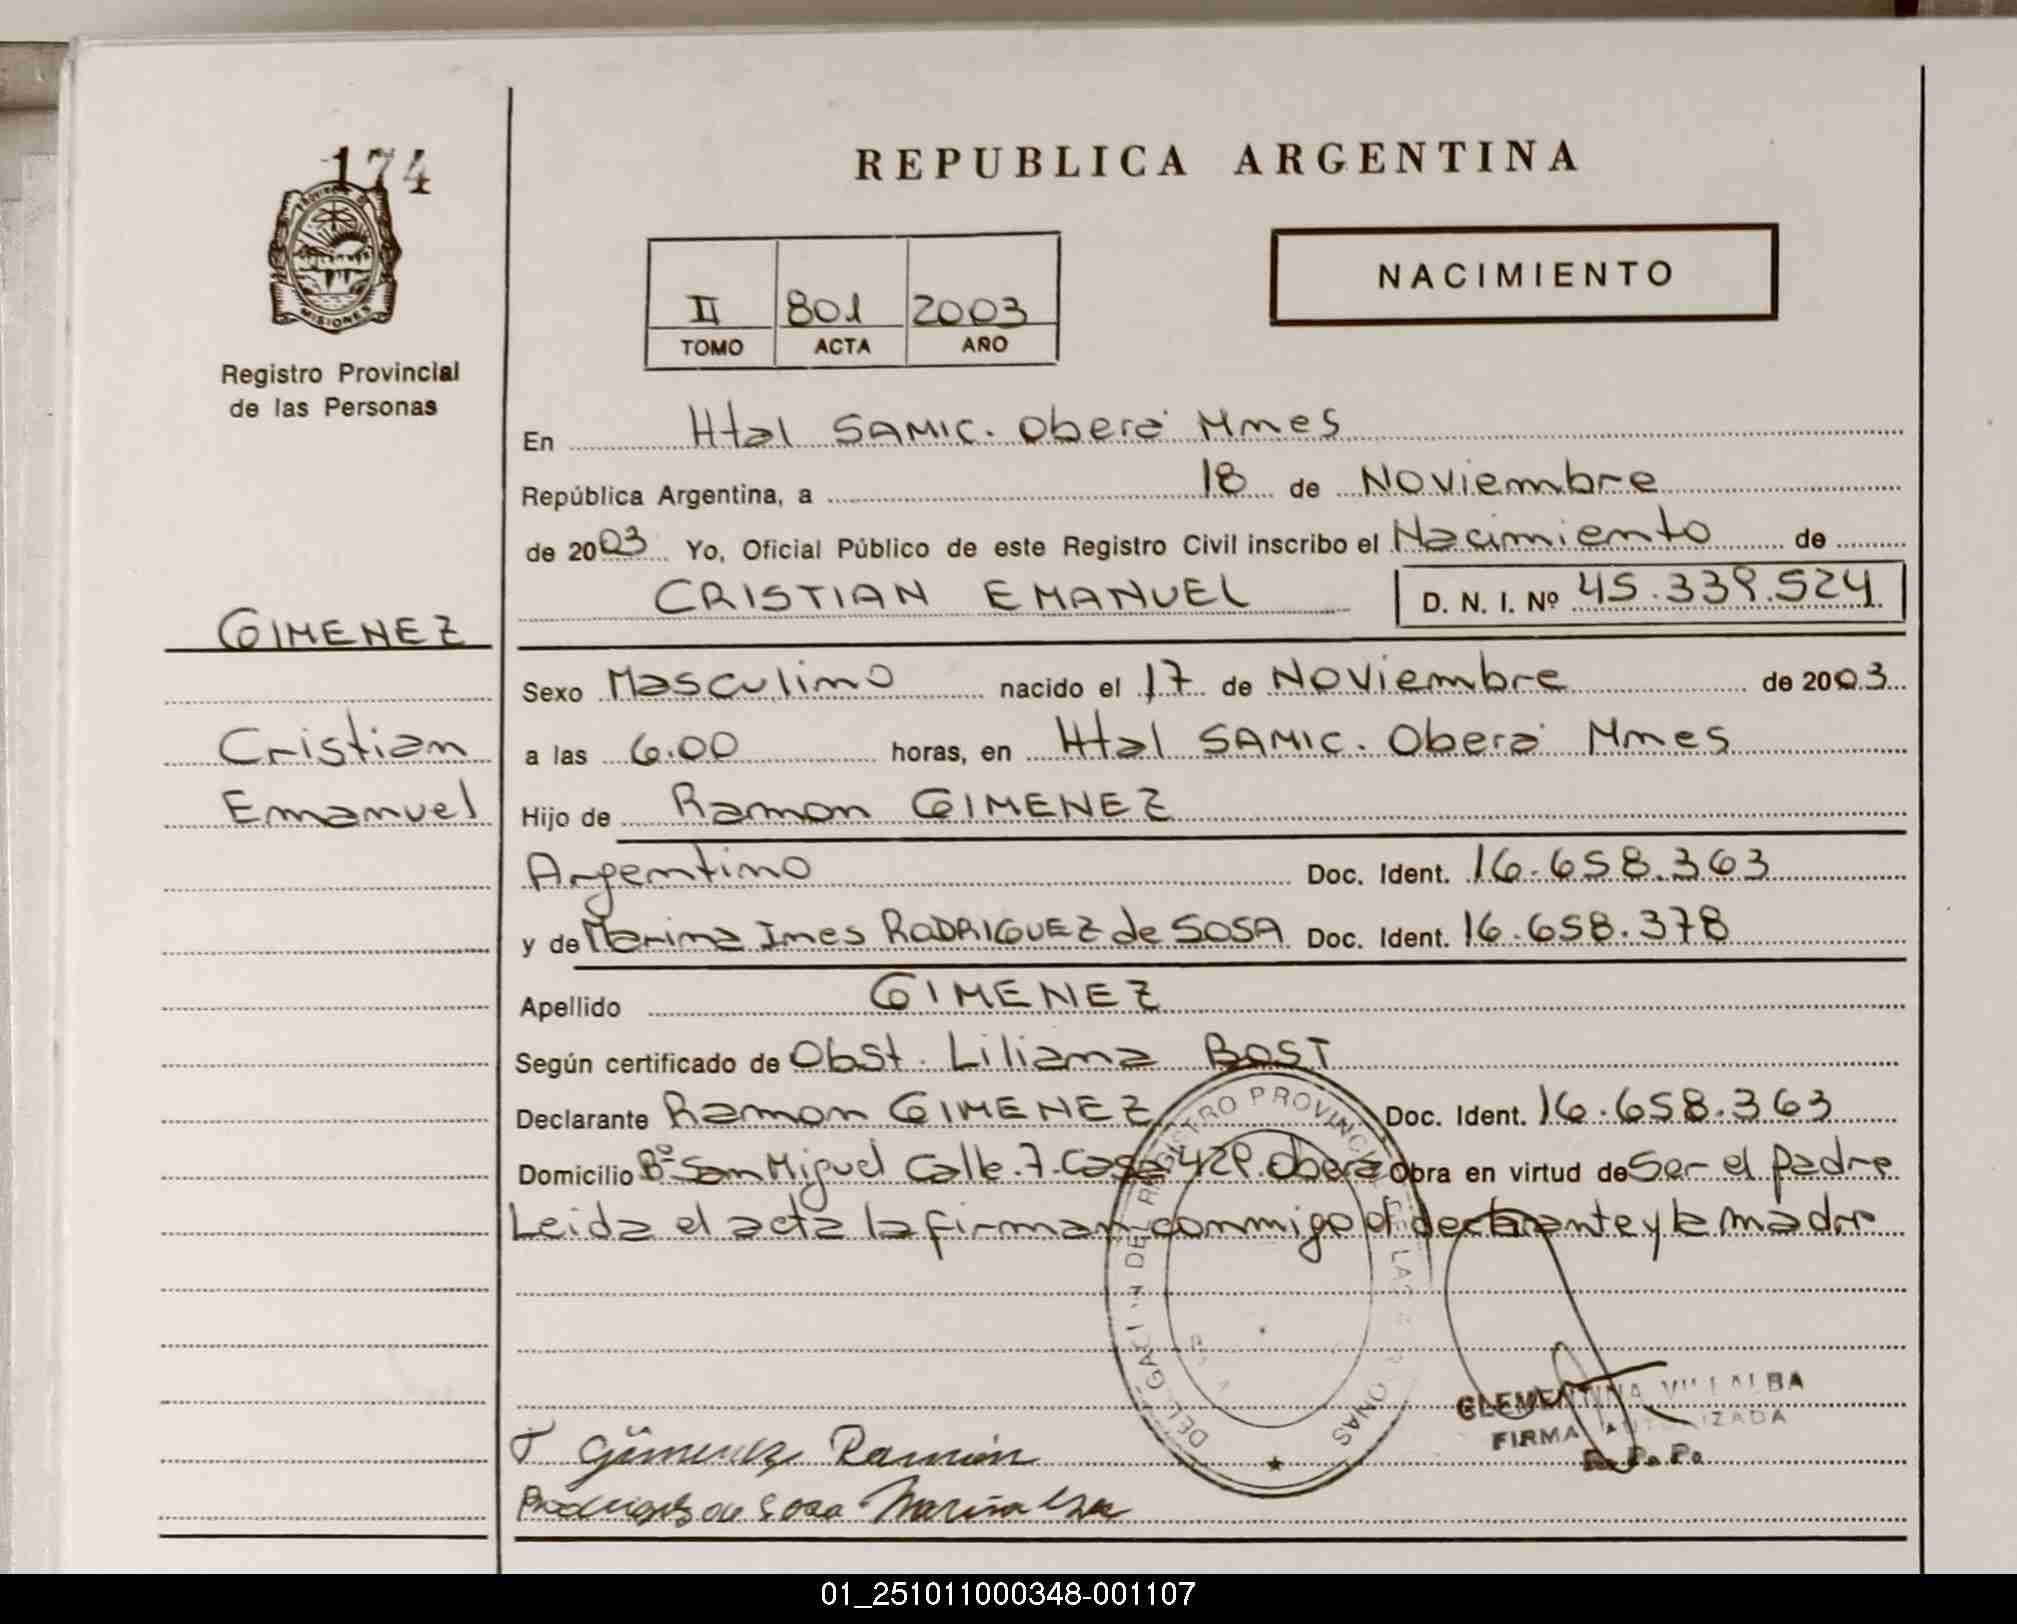 174
PROVINCIA D
MISIONES
Registro Provincial
de las Personas
REPUBLICA ARGENTINA
II 801 2003
TOMO ACTA AÑO
NACIMIENTO
En Htal SAMIC. Oberá Mnes
República Argentina, a 18 de Noviembre
de 2003 Yo, Oficial Público de este Registro Civil inscribo el Nacimiento de
CRISTIAN EMANUEL D. N. I. Nº 45.339.524
GIMENEZ
Cristian
Emanuel
Sexo Masculino nacido el 17 de Noviembre de 2003
a las 6.00 horas, en Htal SAMIC. Oberá Mnes
Hijo de Ramon GIMENEZ
Argentino Doc. Ident. 16.658.363
y de Marina Ines RODRIGUEZ de SOSA Doc. Ident. 16.658.378
Apellido GIMENEZ
Según certificado de Obst. Liliana BOST
Declarante Ramon GIMENEZ Doc. Ident. 16.658.363
Domicilio Bº San Miguel Calle.7.Casa 429.Oberá Obra en virtud de Ser el padre
Leida el acta la firman conmigo el declarante y la madre
REGISTRO PROVINCIAL
CLEMENTINA VILLALBA
FIRMA AUTORIZADA
R. P. P.
Gimenez Ramón
Rodriguez de Sosa Marina
01_251011000348-001107